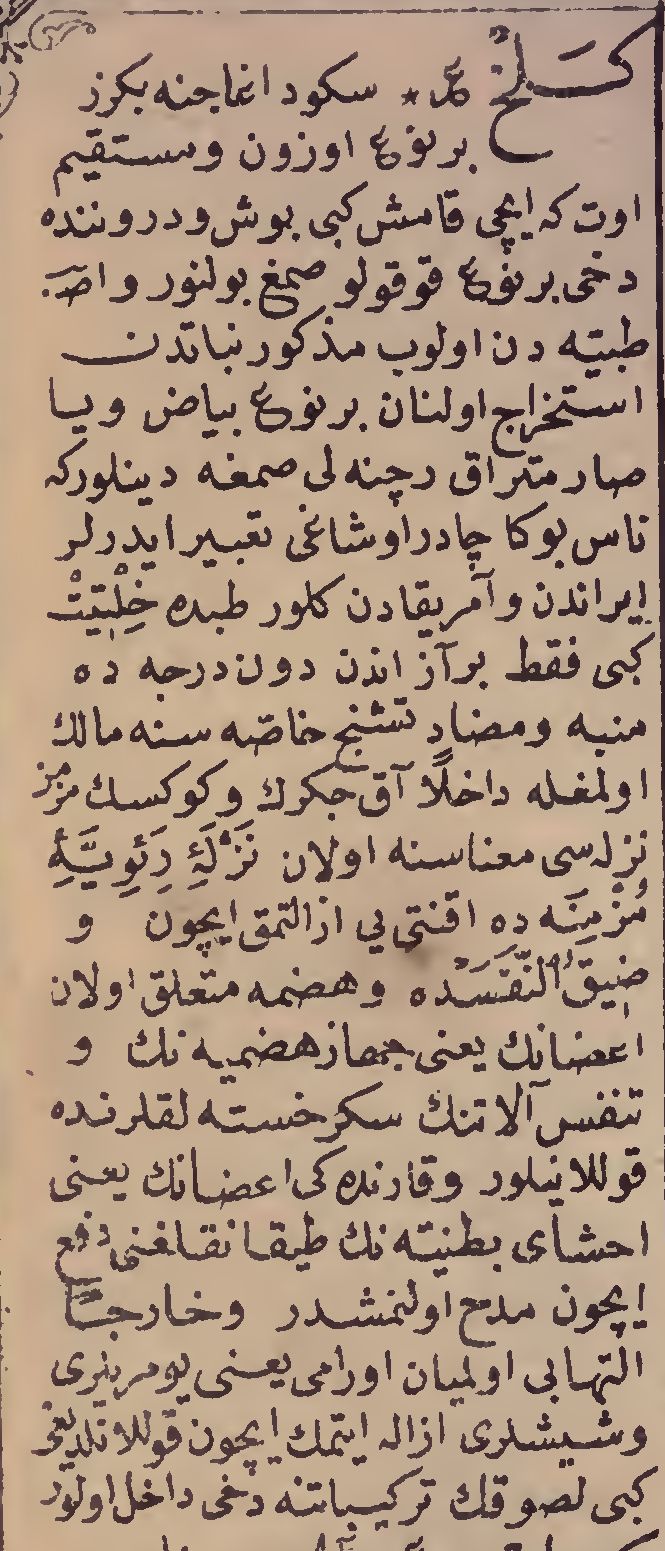 كَلْخْ ع * سكود اغاجنه بكزر
بر نوع اوزون ومستقيم
اوت كه ايچى قامش كبى بوش ودروننده
دخى بر نوع قوقولو صمغ بولنور واصـ
طبيّه دن اولوب مذكور نباتدن
استخراج اولنان بر نوع بياض ويا
صارمتراق رچنه لى صمغه دينلوركه
ناس بوكا چادر اوشاغى تعبير ايدرلر
ايراندن وآمريقادن كلور طبده خِلْتِيتْ
كبى فقط بر آز اندن دون درجه ده
منبه ومضاد تشنج خاصّه سنه مالك
اولمغله داخلًا آق جكرك وكوكسك مزمز
نزله سى معناسنه اولان نَزْلَۀِ رَئَوِيَّۀِ
مُزْمِنَه ده اقنتى يى ازالتمق ايچون و
ضيقُ النَّفَسَده وهضمه متعلق اولان
اعضانك يعنى جهاز هضميه نك و
تنفس آلاتنك سكر خسته لقلرنده
قوللانيلور وقارنده كى اعضانك يعنى
احشاى بطنيّه نك طيقانقلغنى دفع
ايچون مدح اولنمشدر وخارجًا
التهابى اولميان اورامى يعنى يومريلرى
وشيشلرى ازاله ايتمك ايچون قوللانلديغى
كبى لصوقك تركيباتنه دخى داخل اولور